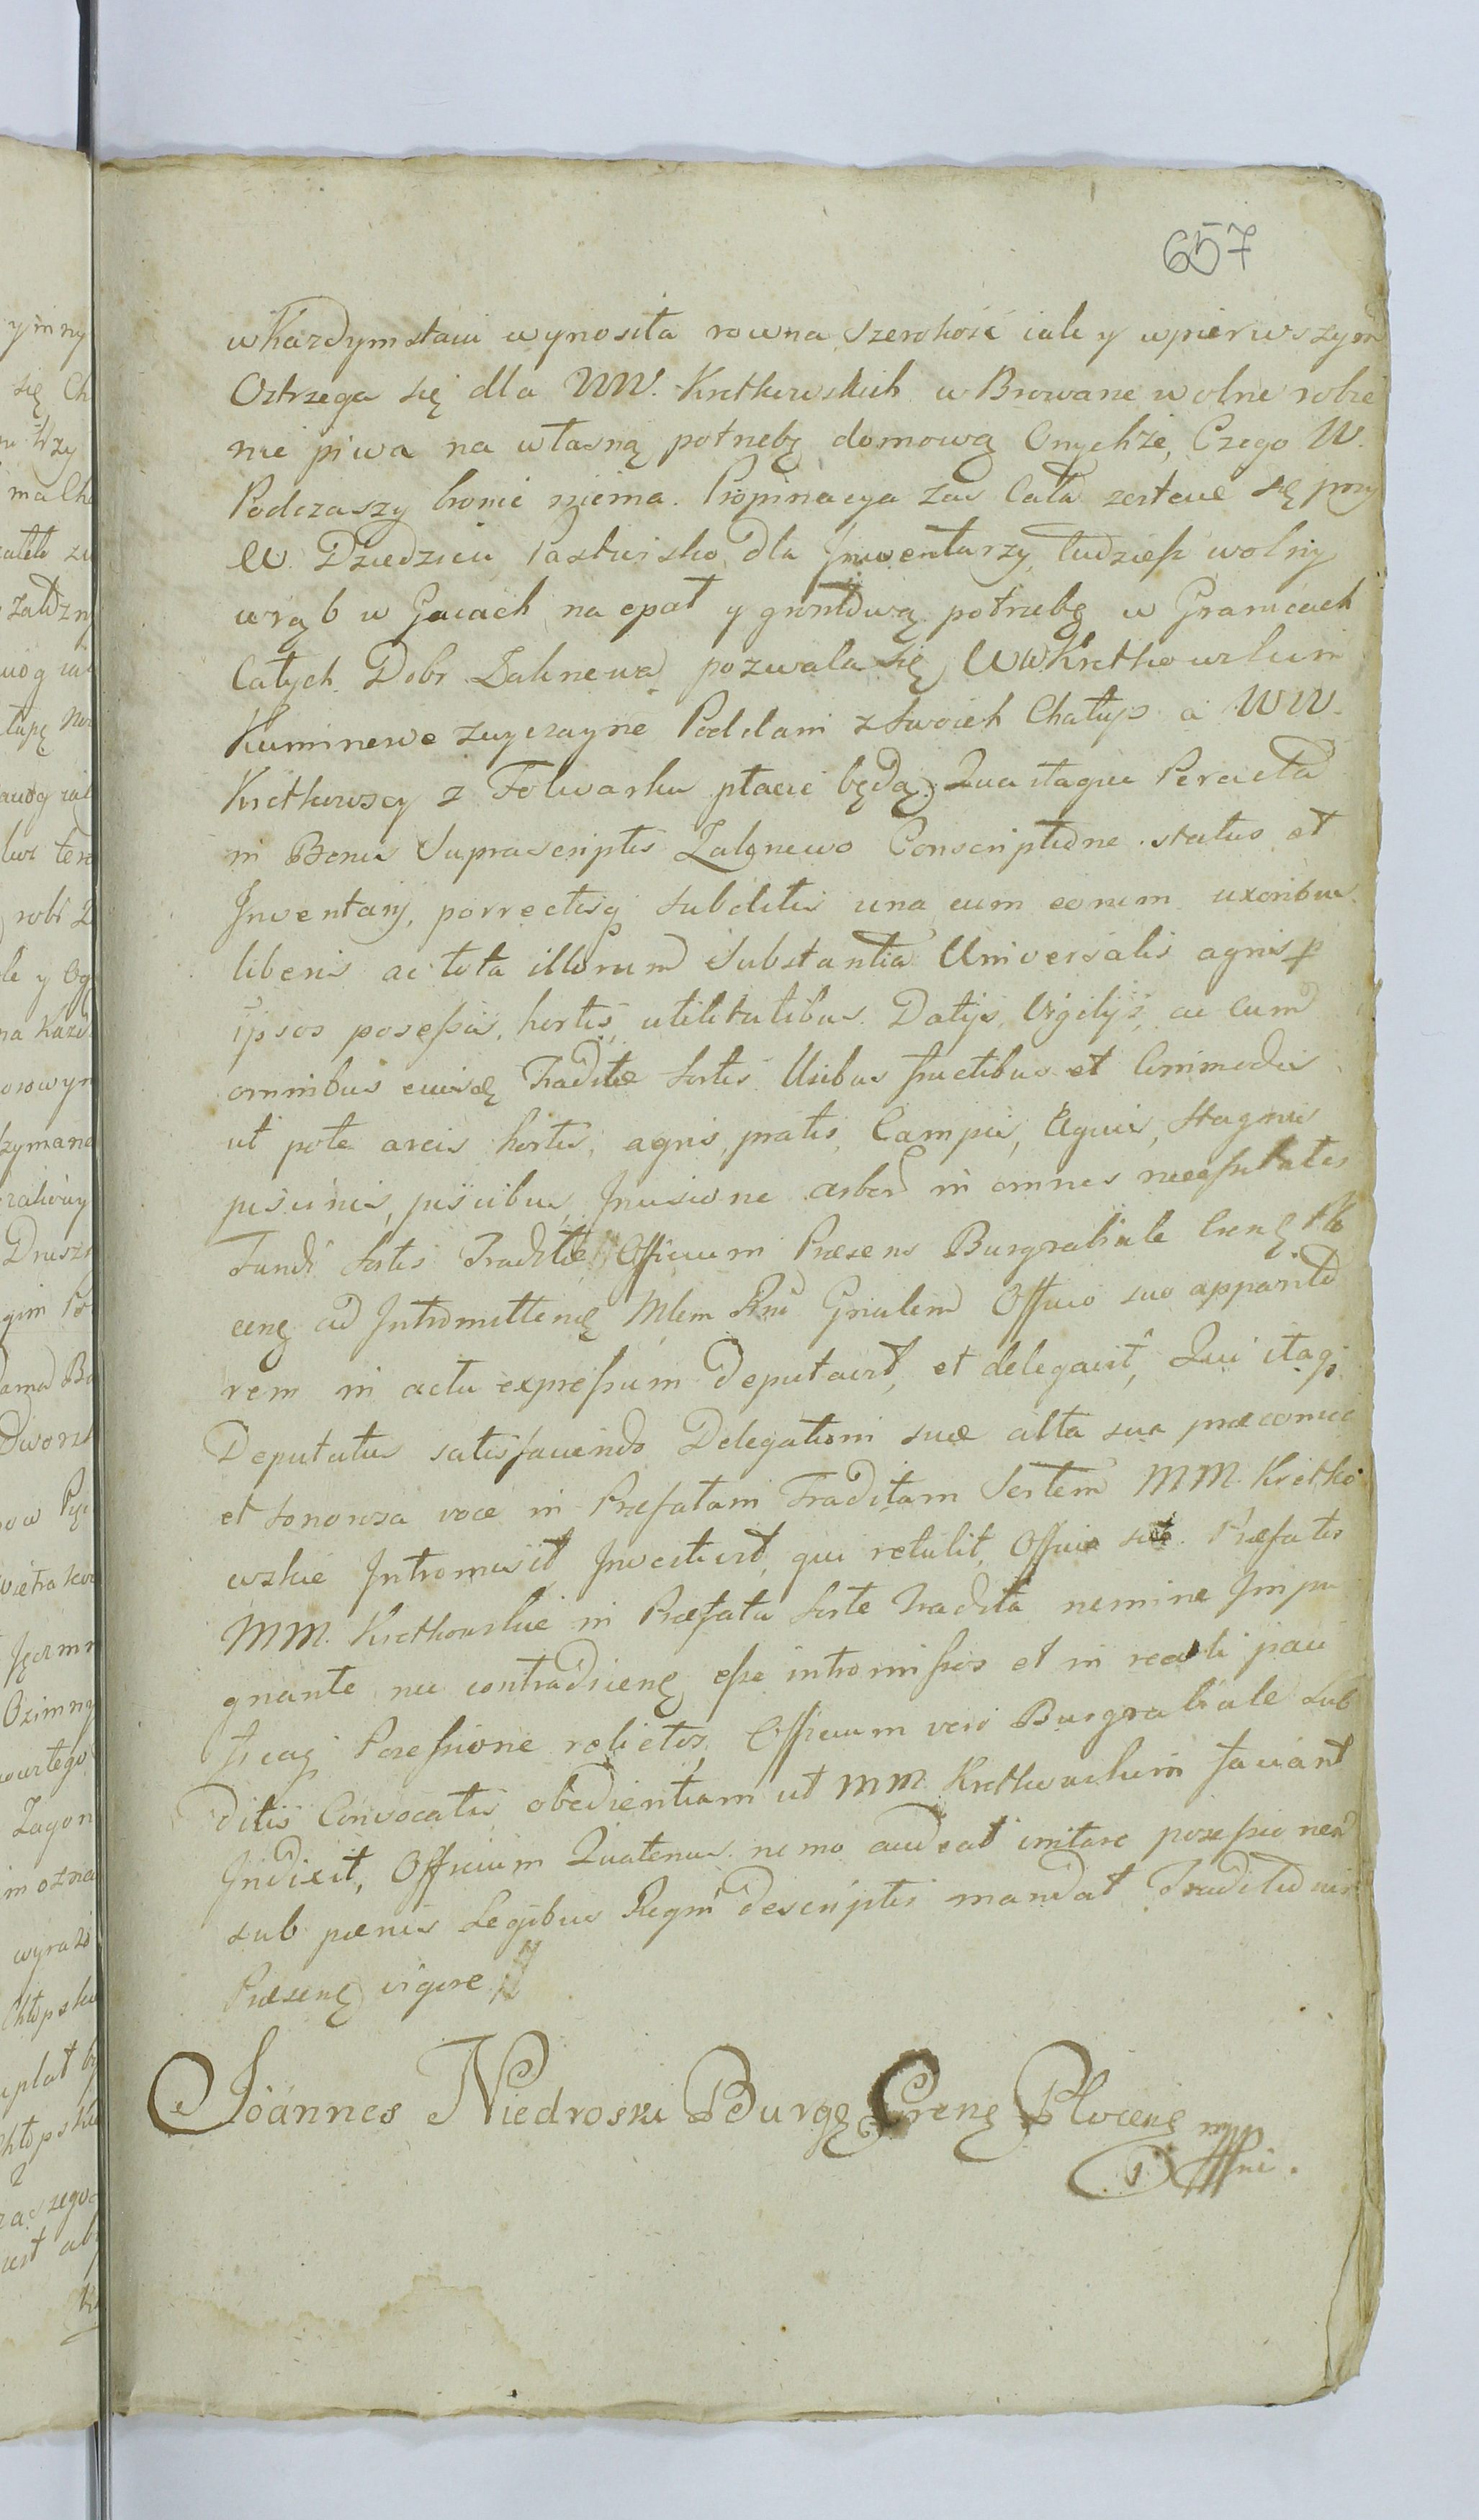 657
w każdym staiu wynosiła rowna szerokość iak y w pierwszym
Ostrzega się dla WW. Kretkowskich w Browarze wolne robie
nie piwa na własną potrzebę domową Onychże, Czego W.
Podczaszy bronić niema. Propinacya zas Cała zostaie się przy
W. Dziedzicu, Pastwisko dla Inwentarzy, tudzież wolny
wrąb w Gaiach na opał y gruntową potrzebę w Granicach
Całych Dobr Zalinewa pozwala się WW Kretkowskim
Kuminowe zwyczayne Poddani z swoich Chałup a WW.
Kretkowscy z Folwarku płacić będą. Qua itaque Peracta
in Bonis Suprascriptis Zalinewo Conscriptione status et
Inventarij, porrectisq subditis una cum eorum uxoribus
liberis ac tota illorum Substantia Universalis agris p
ipsos posessis, hortis, utilitatibus Datijs, Vigilijs, ac cum
omnibus eiusdę Traditæ Sortis Usibus fructibus et Commodis
ut pote areis hortis, agris, pratis, Campis, Aquis, Stagnis
piscinis, piscibus, Incisione arbor in omnes necessitates
Fundi Sortis Traditæ // Officium Præsens Burgrabiale Crenę Plo
cenę ad Intromittenę Mlem Rni Gnralem Officio suo apparito
rem in actu expressum Deputavit, et delegavit, Qui itaq
Deputatus satisfaciendo Delegationi suæ alta sua præconica
et sonorosa voce in Præfatam Traditam Sortem MM. Kretko
wskie Intromisit Investivit, qui retulit Officio suo Præfatos
MM. Kretkowskie in Præfata Sorte Tradita nemine Impu
gnante nec contradicenę esse intromissos et in reali paci
ficaq Posessione relictos, Officium vero Burgrabiale Sub
ditis Convocatis obedientiam ut MM. Kretkowskim faciant
Indixit, Officium Quatenus nemo audeat irritare posessionem
sub pænis Legibus Regni descriptis mandat Traditionis
Præsenę vigore //
Joannes Niedroski Burgę Crenę Plocenę